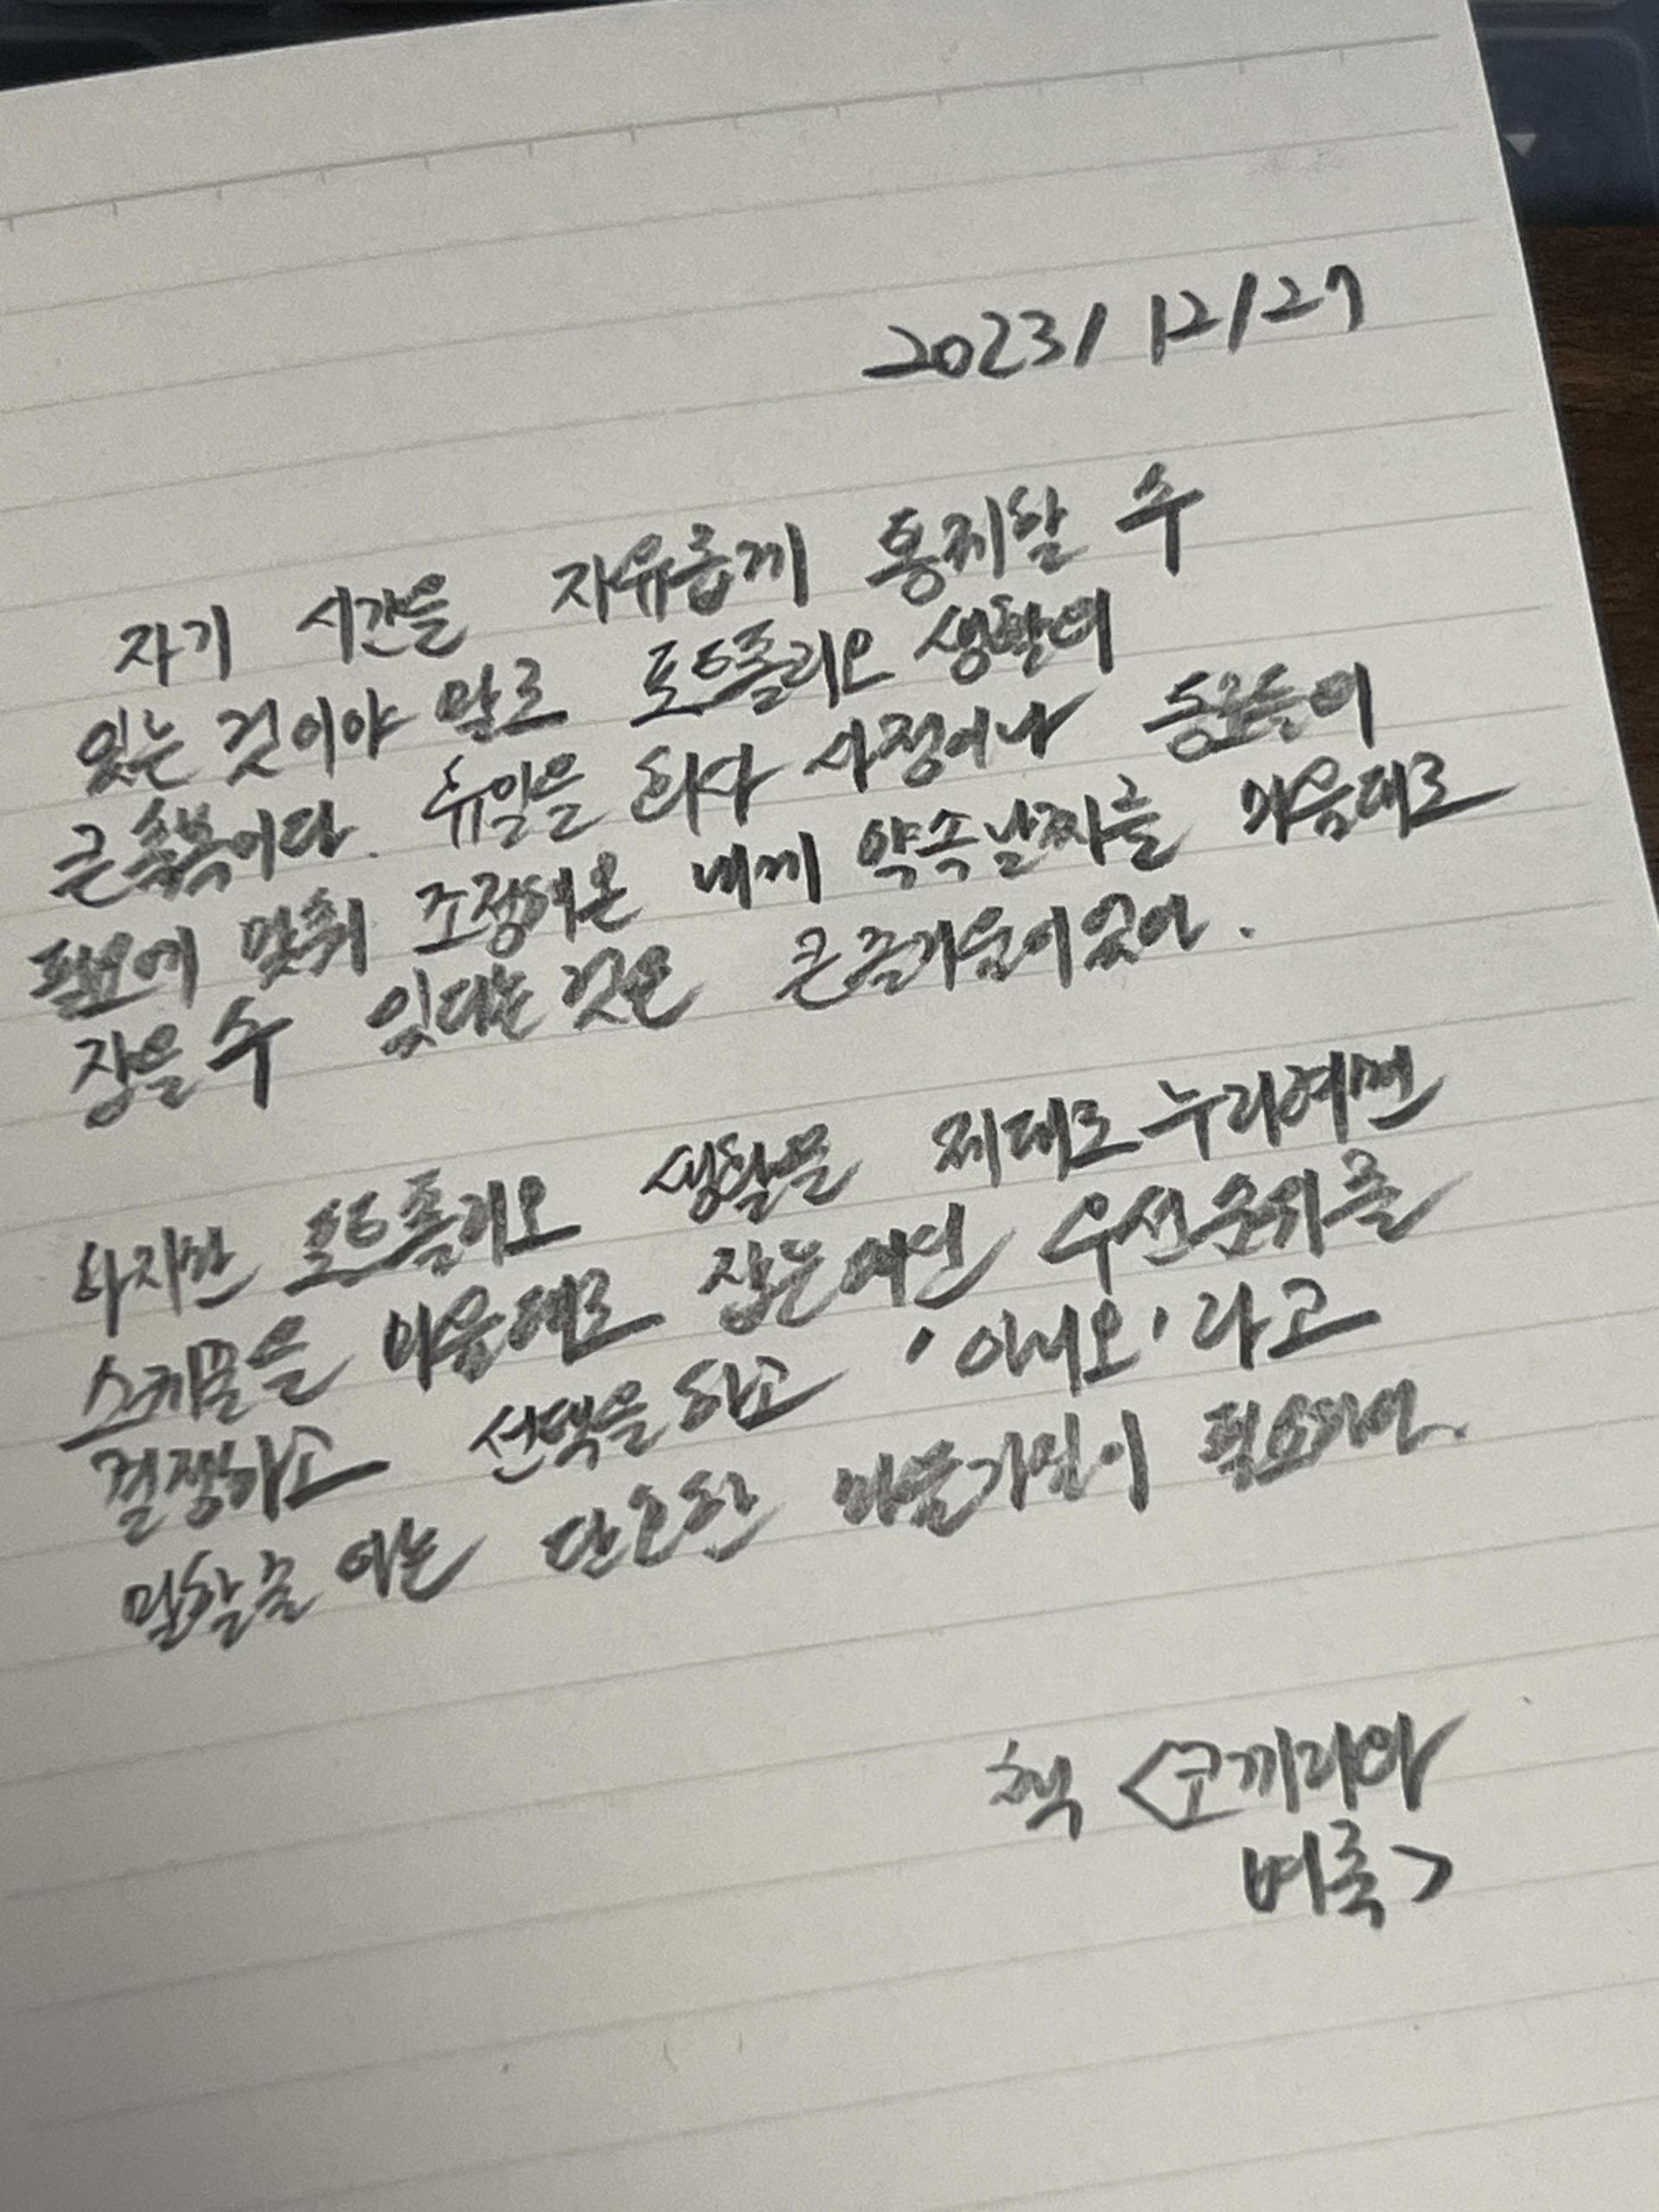 2023/12/27
자기 시간을 자유롭게 통제할 수
있는 것이야 말로 포트폴리오 생활의
큰 축복이다. 휴일을 회사 사정이나 동료들의
필요에 맞춰 조정해온 내게 약속날짜를 마음대로
잡을 수 있다는 것은 큰 즐거움이었어.
하지만 포트폴리오 생활을 제대로 누리려면
스케줄을 마음대로 잡는 대신 우선순위를
결정하고 선택을 하고 '아니오' 라고
말할 줄 아는 단호한 마음가짐이 필요하다.
책 <코끼리와
벼룩>